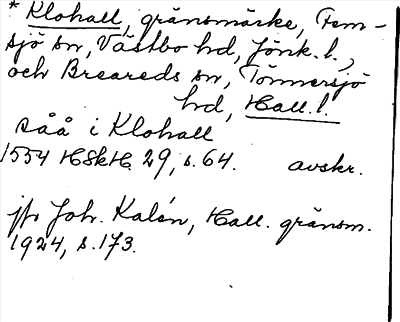 * Klohall, gränsmärke, Fem-
sjö sn, Västbo hd, Jönk. l.,
och Breareds sn, Tönnersjö
hd, Hall. l.
såå i Klohall
1554 HSkH 29, s. 64. avskr.
jfr Joh. Kalén, Hall. gränsm.
1924, s. 173.